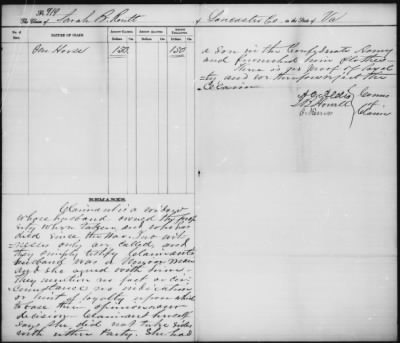 No. 919
The Claim of Sarah B. Routt of Lancaster Co. in the State of Va
No. of Item. NATURE OF CLAIM. AMOUNT CLAIMED. AMOUNT ALLOWED. AMOUNT DISALLOWED.
Dollars Cts. Dollars Cts. Dollars Cts.
One Horse 150 150
REMARKS.
Claimant is a widow
whose husband owned the prop
erty when taken and who has
died since the War. Two wit
nesses only are called, and
they simply testify Claimants
husband was a Union man
and she agreed with him.
They mention no fact or cir
cumstance no indication
or hint of loyalty upon which
to base their opinion or
decision. Claimant herself
says she did not take sides
with either Party. She had
a son in the Confederate Army
and furnished him clothes
There is no proof of loyal
ty and we therefore reject the
Claim
A. O. Aldis
J B Howell
O. Ferriss
Comrs
of
Claims